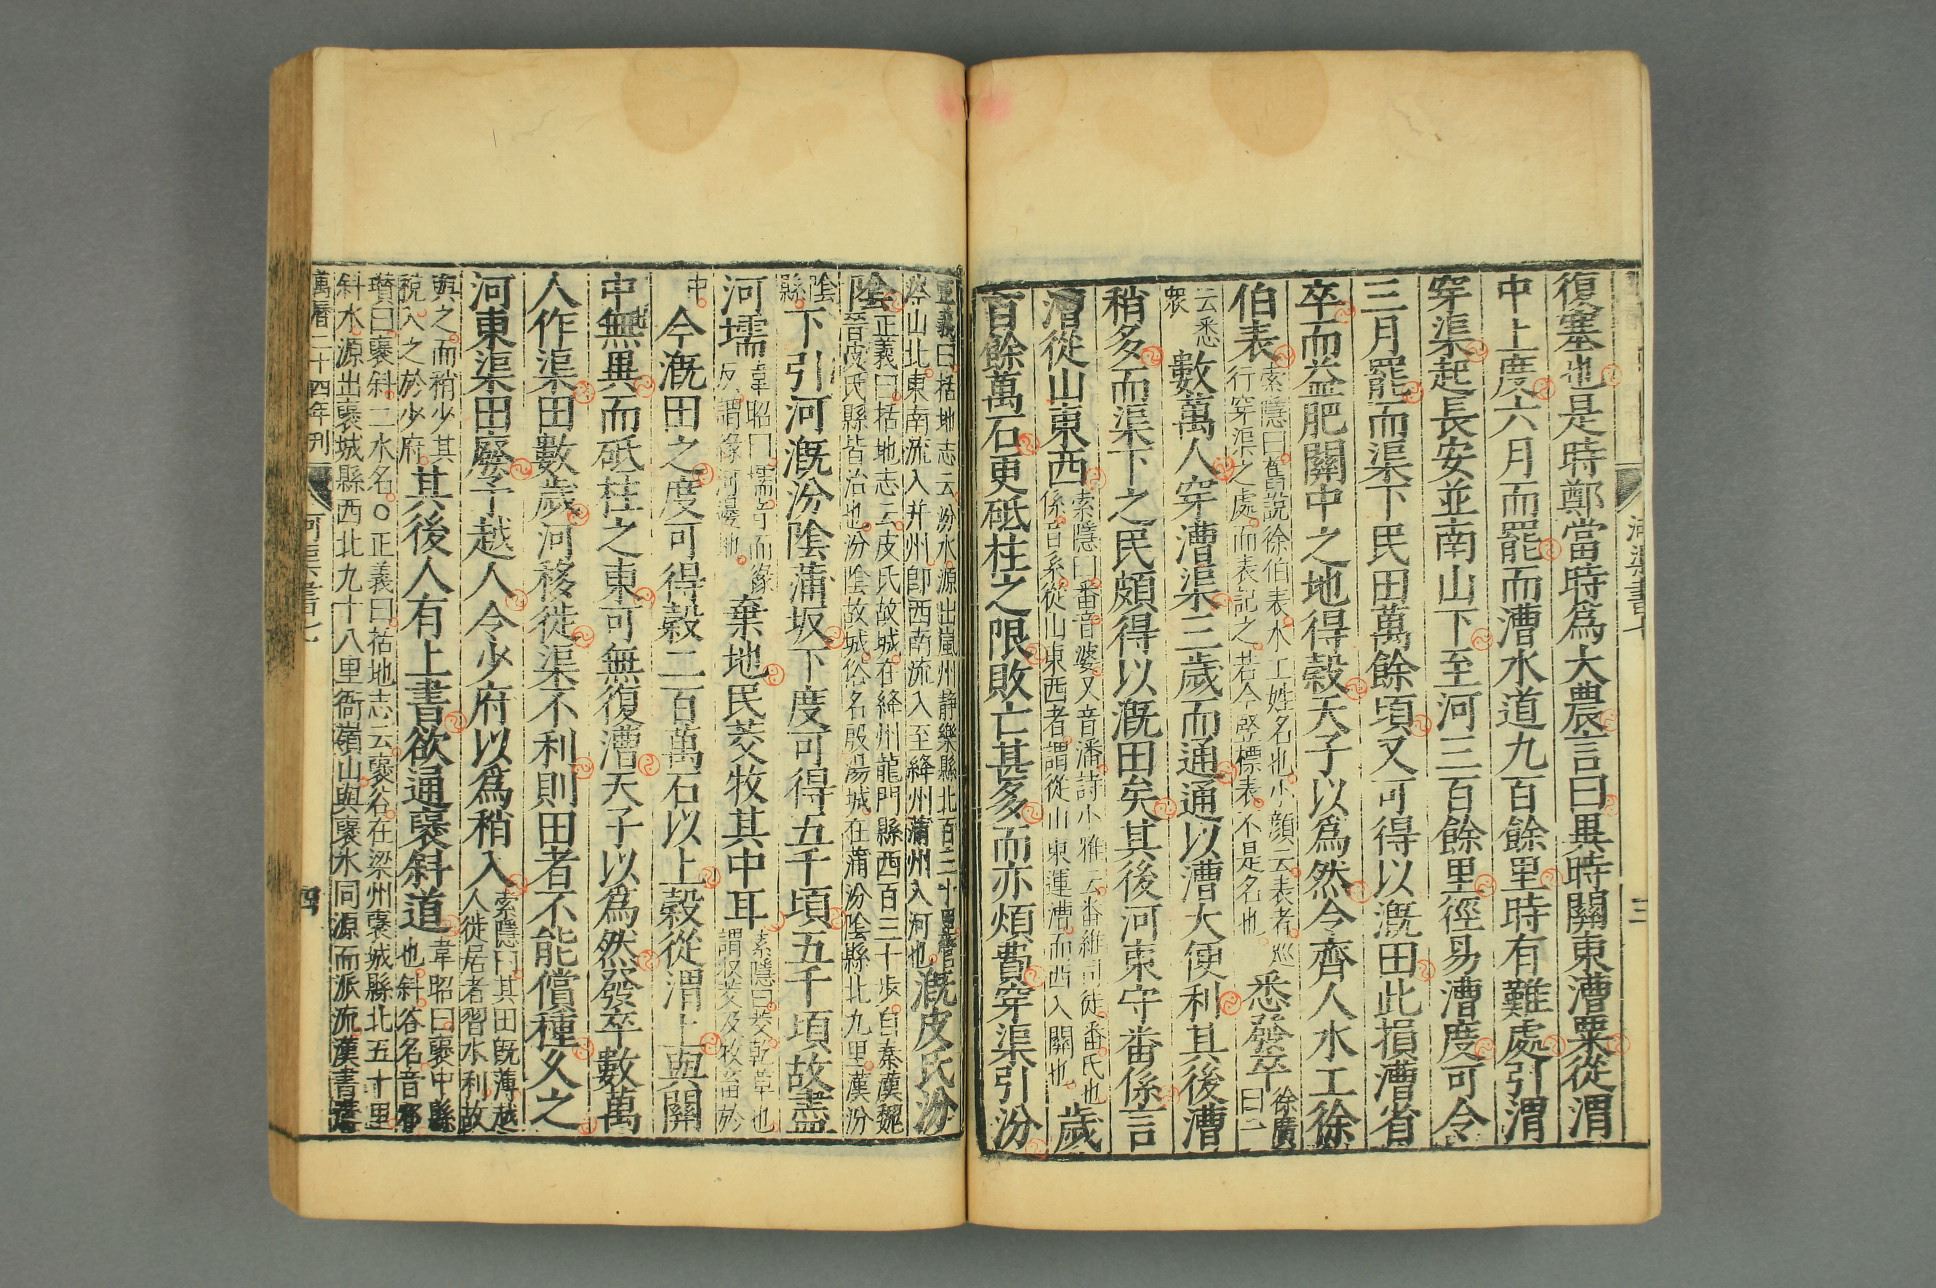 河渠書七 三
復塞也是時鄭當時爲大農言曰異時關東漕粟從渭
中上度六月而罷而漕水道九百餘里時有難處引渭
穿渠起長安並南山下至河三百餘里徑易漕度可令
三月罷而渠下民田萬餘頃又可得以溉田此損漕省
卒而益肥關中之地得穀天子以爲然令齊人水工徐
伯表
索隱曰舊說徐伯表水工姓名也小顏云表者巡
行穿渠之處而表記之若今竪標表不是名也
悉發卒
徐廣
曰一
云悉
衆
數萬人穿漕渠三歲而通通以漕大便利其後漕
稍多而渠下之民頗得以溉田矣其後河東守番係言
漕從山東西
索隱曰番音婆又音潘詩小雅云番維司徒番氏也
係音系從山東西者謂從山東運漕而西入關也
歲
百餘萬石更砥柱之限敗亡甚多而亦煩費穿渠引汾
正義曰括地志云汾水源出嵐州靜樂縣北百三十里管
涔山北東南流入并州即西南流入至絳州蒲州入河也
溉皮氏汾
陰
正義曰括地志云皮氏故城在絳州龍門縣西百三十步自秦漢魏
晉皮氏縣皆治也汾陰故城俗名殷湯城在蒲汾陰縣北九里漢汾
陰
縣
下引河溉汾陰蒲坂下度可得五千頃五千頃故盡
河壖
韋昭曰壖音而緣
反謂緣河邊地
棄地民茭牧其中耳
索隱曰茭乾草也
謂収茭及牧畜於
中
今溉田之度可得穀二百萬石以上穀從渭上與關
中無異而砥柱之東可無復漕天子以爲然發卒數萬
人作渠田數歲河移徙渠不利則田者不能償種久之
河東渠田廢予越人令少府以爲稍入
索隱曰其田既薄越
人徙居者習水利故
與之而稍少其
稅入之於少府
其後人有上書欲通襃斜道
韋昭曰襃中縣
也斜谷名音邪
瓚曰襃斜二水名○正義曰括地志云襃谷在梁州襃城縣北五十里
斜水源出襃城縣西北九十八里衙嶺山與襃水同源而派流漢書溝
萬曆二十四年刊 河渠書七 四